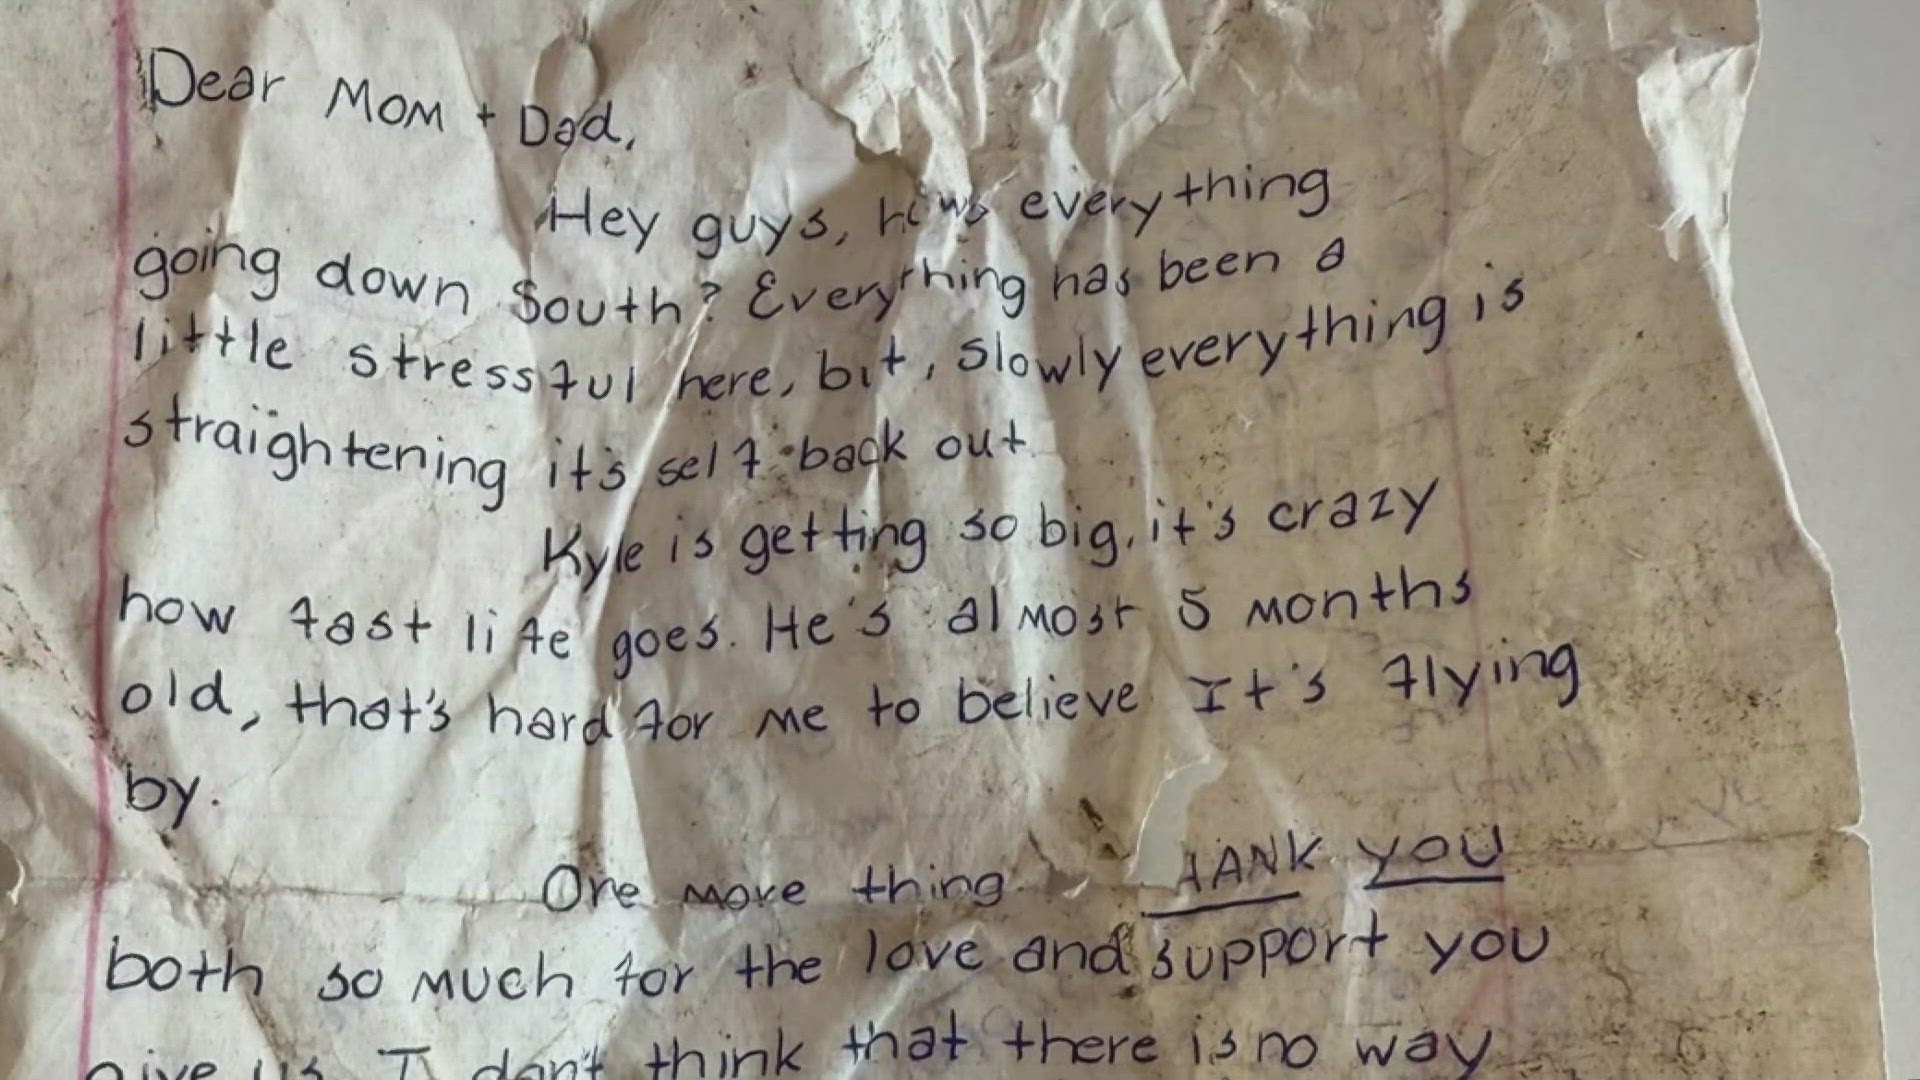 Dear Mom + Dad,
Hey guys, hows everything
going down South? Everything has been a
little stressful here, but, slowly everything is
straightening it's self back out.
Kyle is getting so big, it's crazy
how fast life goes. He's almost 5 months
old, that's hard for me to believe. It's flying
by.
One more thing HANK YOU
both so much for the love and support you
give us. I don't think that there is no way